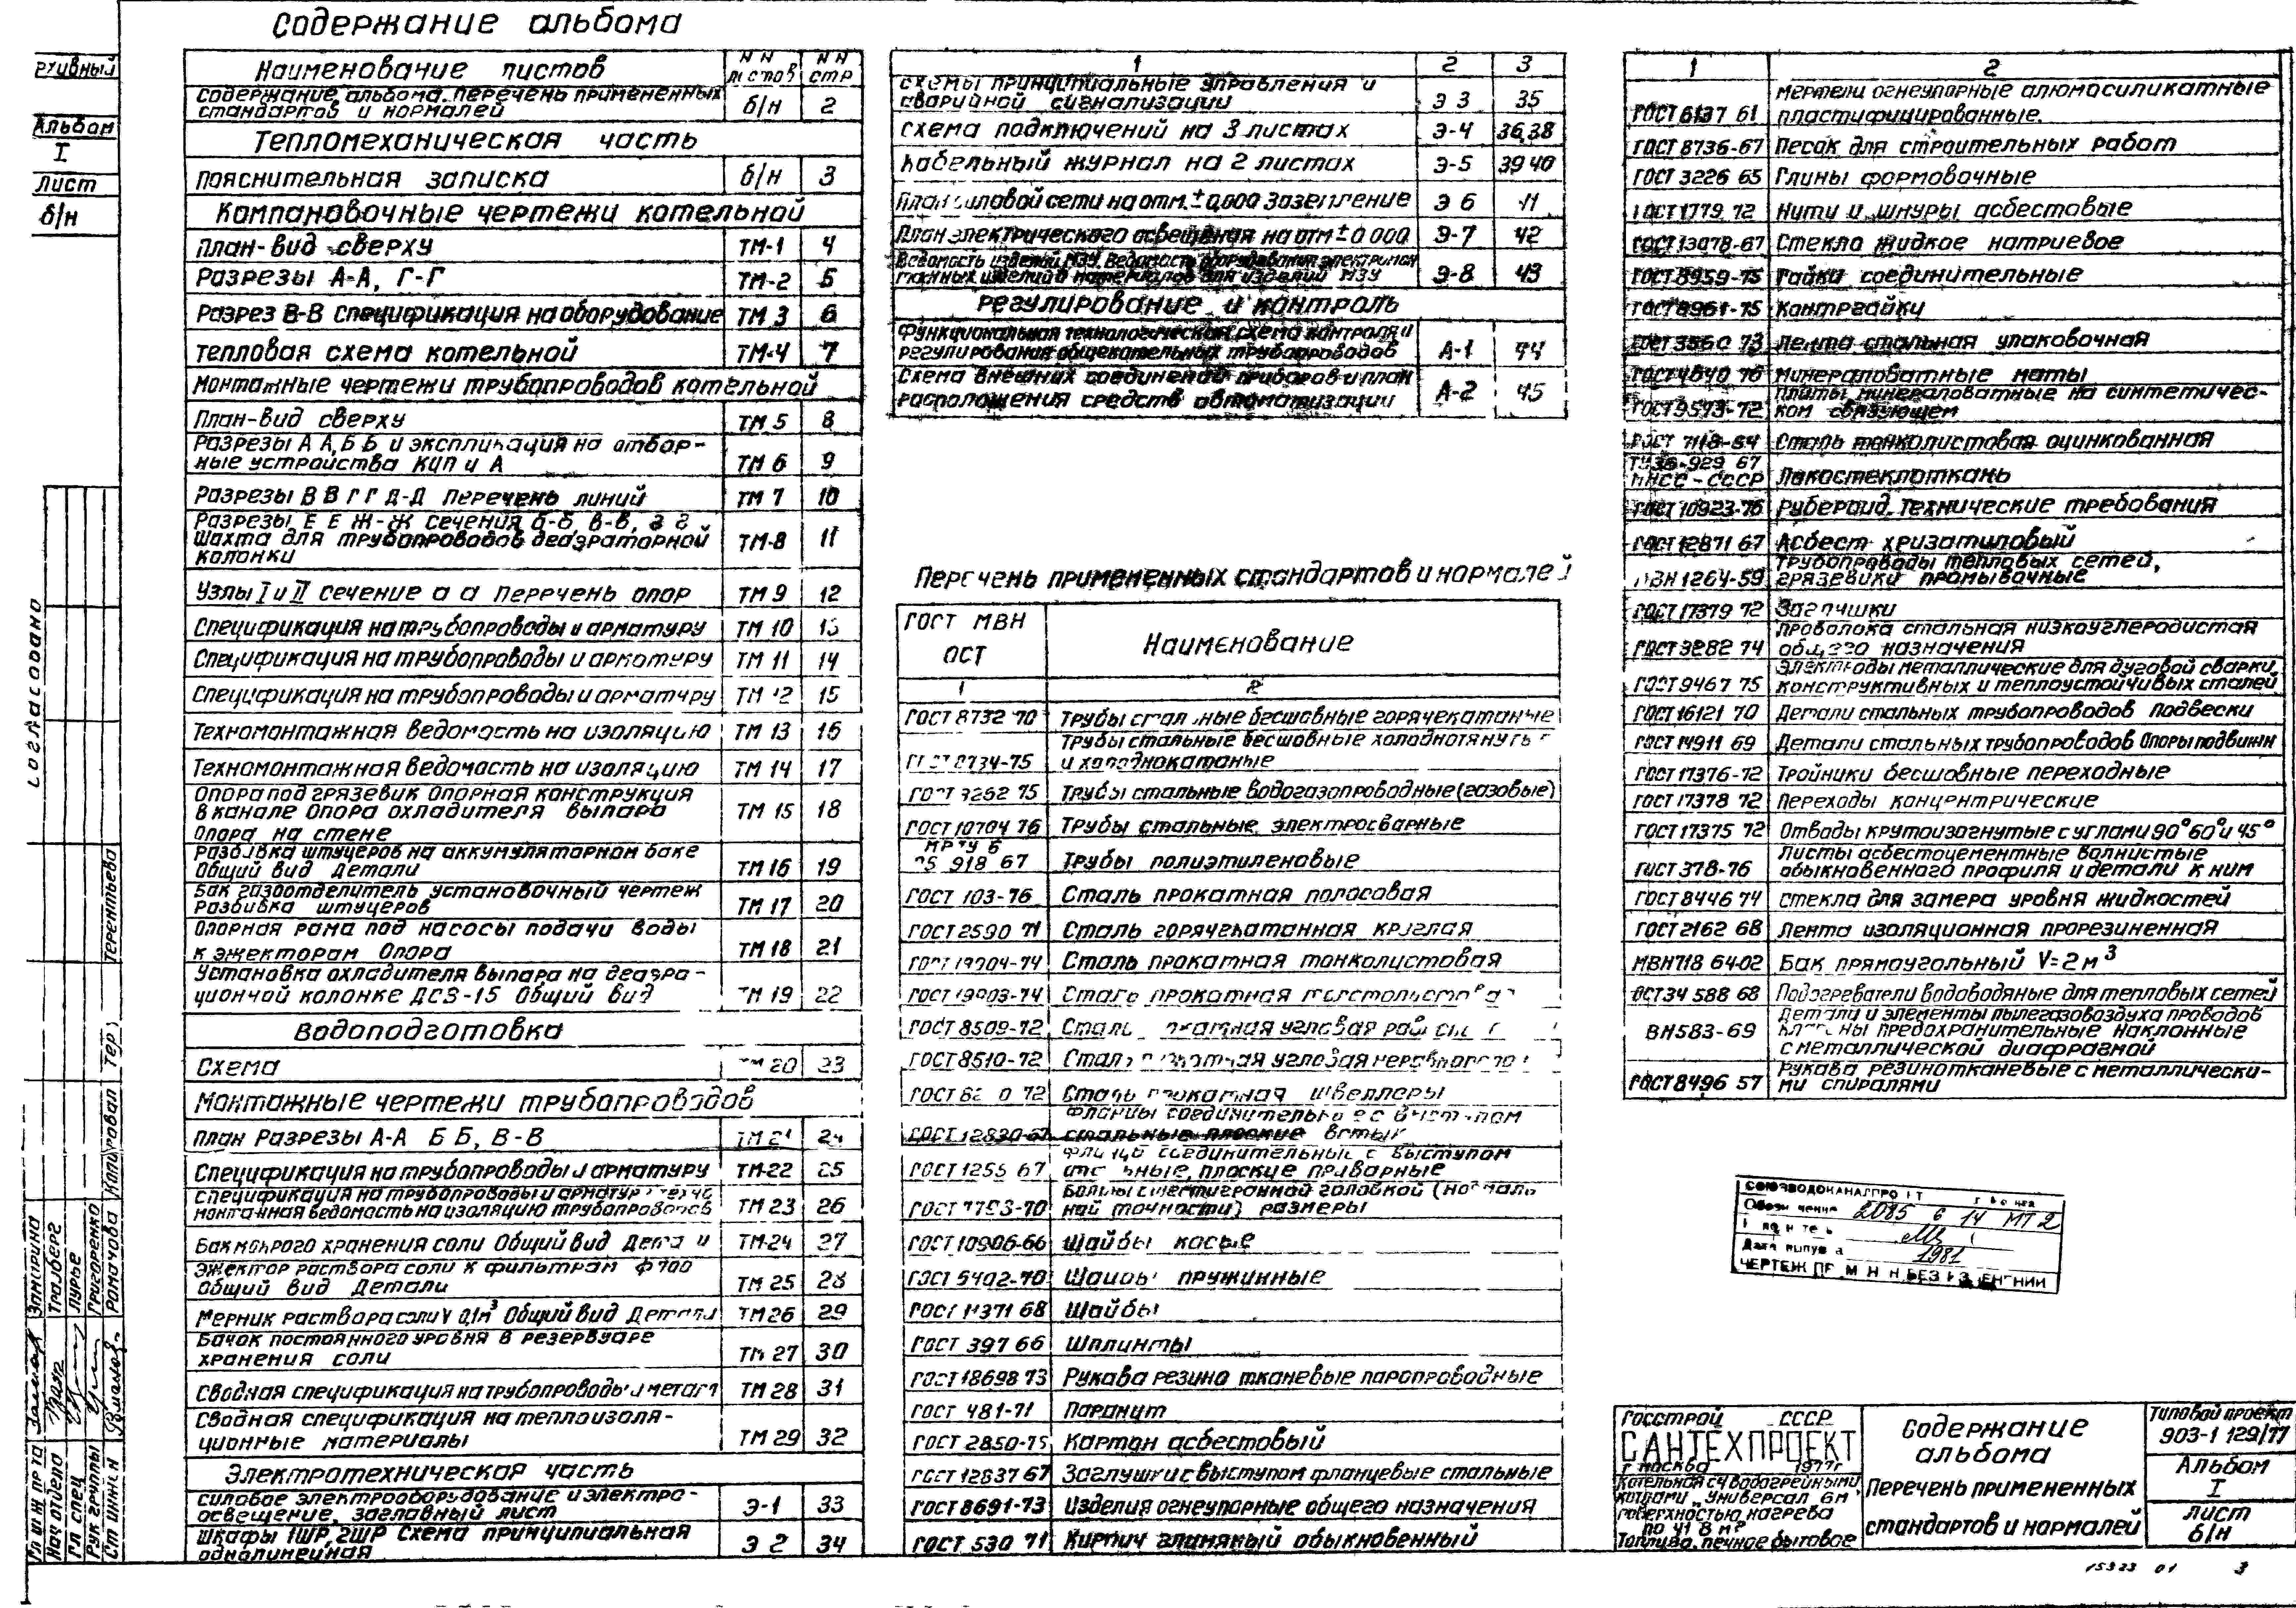 Содержание альбома
Наименование листов | NN листов | NN стр
Содержание альбома. Перечень примененных стандартов и нормалей | б/н | 2
Тепломеханическая часть
Пояснительная записка | б/н | 3
Компановочные чертежи котельной
План-вид сверху | ТМ-1 | 4
Разрезы А-А, Г-Г | ТМ-2 | 5
Разрез В-В Спецификация на оборудование | ТМ 3 | 6
Тепловая схема котельной | ТМ-4 | 7
Монтажные чертежи трубопроводов котельной
План-вид сверху | ТМ 5 | 8
Разрезы А А, Б Б и экспликация на отбор-
ные устройства КИП и А | ТМ 6 | 9
Разрезы В В Г Г Д-Д перечень линий | ТМ 7 | 10
Разрезы Е Е Ж-Ж сечения б-б, в-в, г г
Шахта для трубопроводов деаэраторной
колонки | ТМ-8 | 11
Узлы I и II сечение а а перечень опор | ТМ 9 | 12
Спецификация на трубопроводы и арматуру | ТМ 10 | 13
Спецификация на трубопроводы и арматуру | ТМ 11 | 14
Спецификация на трубопроводы и арматуру | ТМ 12 | 15
Техномонтажная ведомость на изоляцию | ТМ 13 | 16
Техномонтажная ведомость на изоляцию | ТМ 14 | 17
Опора под грязевик Опорная конструкция
в канале Опора охладителя выпара
Опора на стене | ТМ 15 | 18
Разбивка штуцеров на аккумуляторном баке
Общий вид Детали | ТМ 16 | 19
Бак газоотделитель установочный чертеж
Разбивка штуцеров | ТМ 17 | 20
Опорная рама под насосы подачи воды
к эжекторам Опора | ТМ 18 | 21
Установка охладителя выпара на деаэра-
ционной колонке ДСЗ-15 Общий вид | ТМ 19 | 22
Водоподготовка
Схема | ТМ 20 | 23
Монтажные чертежи трубопроводов
План Разрезы А-А Б Б, В-В | ТМ 21 | 24
Спецификация на трубопроводы и арматуру | ТМ-22 | 25
Спецификация на трубопроводы и арматур техно
монтажная ведомость на изоляцию трубопроводов | ТМ 23 | 26
Бак мокрого хранения соли Общий вид Детали | ТМ-24 | 27
Эжектор раствора соли к фильтрам ф 700
Общий вид Детали | ТМ 25 | 28
Мерник раствора соли V 0,1м³ Общий вид Детали | ТМ 26 | 29
Бачок постоянного уровня в резервуаре
хранения соли | ТМ 27 | 30
Сводная спецификация на трубопроводы и металл | ТМ 28 | 31
Сводная спецификация на теплоизоля-
ционные материалы | ТМ 29 | 32
Электротехническая часть
Силовое электрооборудование и электро-
освещение, заглавный лист | Э-1 | 33
Шкафы 1ШР, 2ШР Схема принципиальная
однолинейная | Э 2 | 34
1 | 2 | 3
Схемы принципиальные управления и
аварийной сигнализации | Э 3 | 35
Схема подключений на 3 листах | Э-4 | 36,38
Кабельный журнал на 2 листах | Э-5 | 39 40
План силовой сети на отм. ± 0,000 Заземление | Э 6 | 41
План электрического освещения на отм ± 0 000 | Э-7 | 42
Ведомость изделий МЗУ. Ведомость оборудования электромон
тажных изделий и материалов для изделий МЗУ | Э-8 | 43
Регулирование и контроль
Функциональная технологическая схема контроля и
регулирования общекотельных трубопроводов | А-1 | 44
Схема внешних соединений приборов и план
расположения средств автоматизации | А-2 | 45
Перечень примененных стандартов и нормалей
ГОСТ МВН ОСТ | Наименование
1 | 2
ГОСТ 8732 70 | Трубы стальные бесшовные горячекатаные
ГОСТ 8734-75 | Трубы стальные бесшовные холоднотянутые
и холоднокатаные
ГОСТ 3262 75 | Трубы стальные водогазопроводные (газовые)
ГОСТ 10704 76 | Трубы стальные электросварные
МРТУ 6
05 918 67 | Трубы полиэтиленовые
ГОСТ 103-76 | Сталь прокатная полосовая
ГОСТ 2590 71 | Сталь горячекатанная круглая
ГОСТ 19904-74 | Сталь прокатная тонколистовая
ГОСТ 19903-74 | Сталь прокатная толстолистовая
ГОСТ 8509-72 | Сталь прокатная угловая
ГОСТ 8510-72 | Сталь прокатная угловая
ГОСТ 82 0 72 | Сталь прокатная швеллеры
ГОСТ 12830-67 | Фланцы соединительные с выступом
стальные плоские встык
ГОСТ 1255 67 | Фланцы соединительные с выступом
стальные, плоские приварные
ГОСТ 7798-70 | Болты с шестигранной головкой (нормаль
ной точности) размеры
ГОСТ 10906-66 | Шайбы косые
ГОСТ 6402-70 | Шайбы пружинные
ГОСТ 11371 68 | Шайбы
ГОСТ 397 66 | Шплинты
ГОСТ 18698 73 | Рукава резино тканевые паропроводные
ГОСТ 481-71 | Паронит
ГОСТ 2850-75 | Картон асбестовый
ГОСТ 12837 67 | Заглушки с выступом фланцевые стальные
ГОСТ 8691-73 | Изделия огнеупорные общего назначения
ГОСТ 530 71 | Кирпич глиняный обыкновенный
1 | 2
ГОСТ 6137 61 | Мертели огнеупорные алюмосиликатные
пластифицированные.
ГОСТ 8736-67 | Песок для строительных работ
ГОСТ 3226 65 | Глины формовочные
ГОСТ 1779 72 | Нити и шнуры асбестовые
ГОСТ 13078-67 | Стекло жидкое натриевое
ГОСТ 8959-75 | Гайки соединительные
ГОСТ 8961-75 | Контргайки
ГОСТ 3560 73 | Лента стальная упаковочная
ГОСТ 4640 76 | Минераловатные маты
ГОСТ 9573-72 | Плиты минераловатные на синтетичес-
ком связующем
ГОСТ 7118-54 | Сталь тонколистовая оцинкованная
ТУ 36-929 67
МНСС-СССР | Лакостеклоткань
ГОСТ 10923-76 | Рубероид. Технические требования
ГОСТ 12871 67 | Асбест хризатиловый
МВН 1264-59 | Трубопроводы тепловых сетей,
грязевики промывочные
ГОСТ 17379 72 | Заглушки
ГОСТ 3282 74 | Проволока стальная низкоуглеродистая
общего назначения
ГОСТ 9467 75 | Электроды металлические для дуговой сварки
конструктивных и теплоустойчивых сталей
ГОСТ 16121 70 | Детали стальных трубопроводов Подвески
ГОСТ 14911 69 | Детали стальных трубопроводов Опоры подвижн
ГОСТ 17376-72 | Тройники бесшовные переходные
ГОСТ 17378 72 | Переходы концентрические
ГОСТ 17375 72 | Отводы крутоизогнутые с углами 90° 60° и 45°
ГОСТ 378-76 | Листы асбестоцементные волнистые
обыкновенного профиля и детали к ним
ГОСТ 8446 74 | Стекла для замера уровня жидкостей
ГОСТ 2162 68 | Лента изоляционная прорезиненная
МВН718 64-02 | Бак прямоугольный V=2м³
ОСТ34 588 68 | Подогреватели водоводяные для тепловых сетей
ВН583-69 | Детали и элементы пылегазовоздуха проводов
Клапаны предохранительные наклонные
с металлической диафрагмой
ГОСТ 8496 57 | Рукава резинотканевые с металлически-
ми спиралями
СОЮЗВОДОКАНАЛПРОЕКТ
2085 6 14 МТ 2
Дата выпуска 1981
ЧЕРТЕЖ ПРИМЕНЕН БЕЗ ИЗМЕНЕНИЙ
Госстрой СССР
САНТЕХПРОЕКТ
г Москва 1977г
Котельная с 4 водогрейными
котлами „Универсал 6м"
поверхностью нагрева
по 41 8 м²
Топливо. печное бытовое
Содержание
альбома
Перечень примененных
стандартов и нормалей
Типовой проект
903-1 129/77
Альбом
I
Лист
б/н
15323 01 3
Альбом
I
Лист
б/н
Согласовано
Гл инж пр та Замарина
Нач отдела Тралберг
Гл спец Лурье
Рук группы Григоренко
Ст инжен Ромачова
Копировал Тер. Терентьева